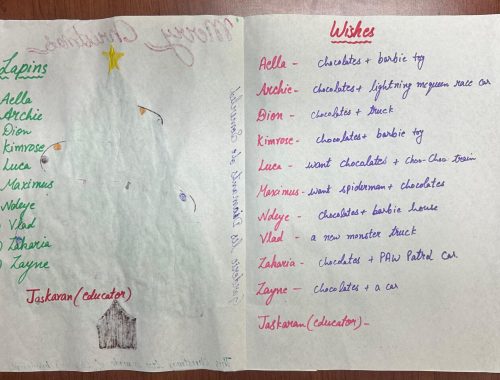 Merry Christmas
Lapins
Aella
Archie
Dion
Kimrose
Luca
Maximus
Ndeye
Vlad
Zaharia
Zayne
Jaskaran (educator)
Wishes
Aella - chocolates + barbie toy
Archie - chocolates + lightning mcqueen race car
Dion - chocolates + truck
Kimrose - chocolates + barbie toy
Luca - want chocolates + choo-choo train
Maximus - want spiderman + chocolates
Ndeye - chocolates + barbie house
Vlad - a new monster truck
Zaharia - chocolates + PAW Patrol car
Zayne - chocolates + a car
Jaskaran (educator) -